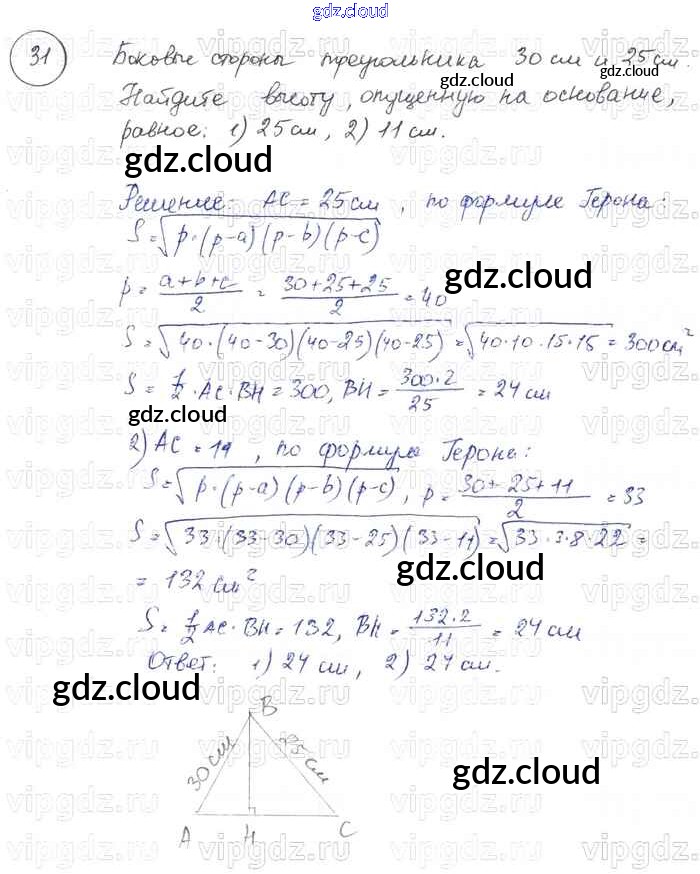 gdz.cloud
31 Боковые стороны треугольника 30 см и 25 см.
gdz.cloud
Найдите высоту, опущенную на основание,
равное: 1) 25 см, 2) 11 см.
gdz.cloud
gdz.cloud
Решение: AC = 25 см, по формуле Герона:
S = √(p·(p-a)(p-b)(p-c))
gdz.cloud
p = (a+b+c)/2 = (30+25+25)/2 = 40
S = √(40·(40-30)(40-25)(40-25)) = √(40·10·15·15) = 300 см²
S = 1/2·AC·BH = 300, BH = (300·2)/25 = 24 см
gdz.cloud
2) AC = 11, по формула Герона:
S = √(p·(p-a)(p-b)(p-c)), p = (30+25+11)/2 = 33
S = √(33·(33-30)(33-25)(33-11)) = √(33·3·8·22) =
gdz.cloud
= 132 см²
S = 1/2 AC·BH = 132, BH = (132·2)/11 = 24 см
Ответ: 1) 24 см, 2) 24 см.
gdz.cloud
B
30 см 25 см
gdz.cloud
A H C
vipgdz.ru